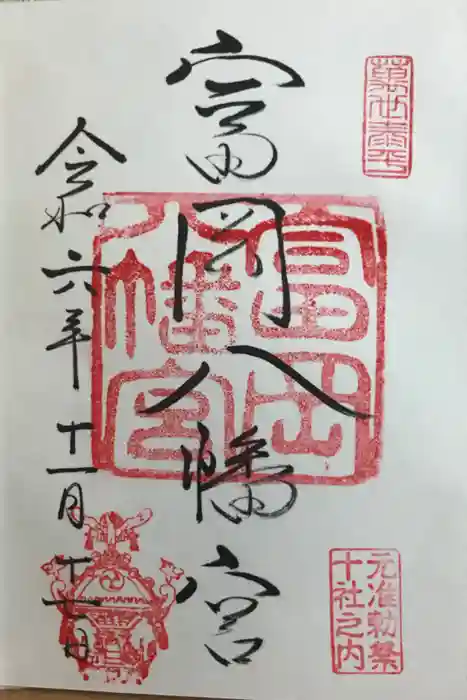 萬世泰平
元准勅祭
十社之内
富岡八幡宮
富岡
八幡宮
令和六年十一月